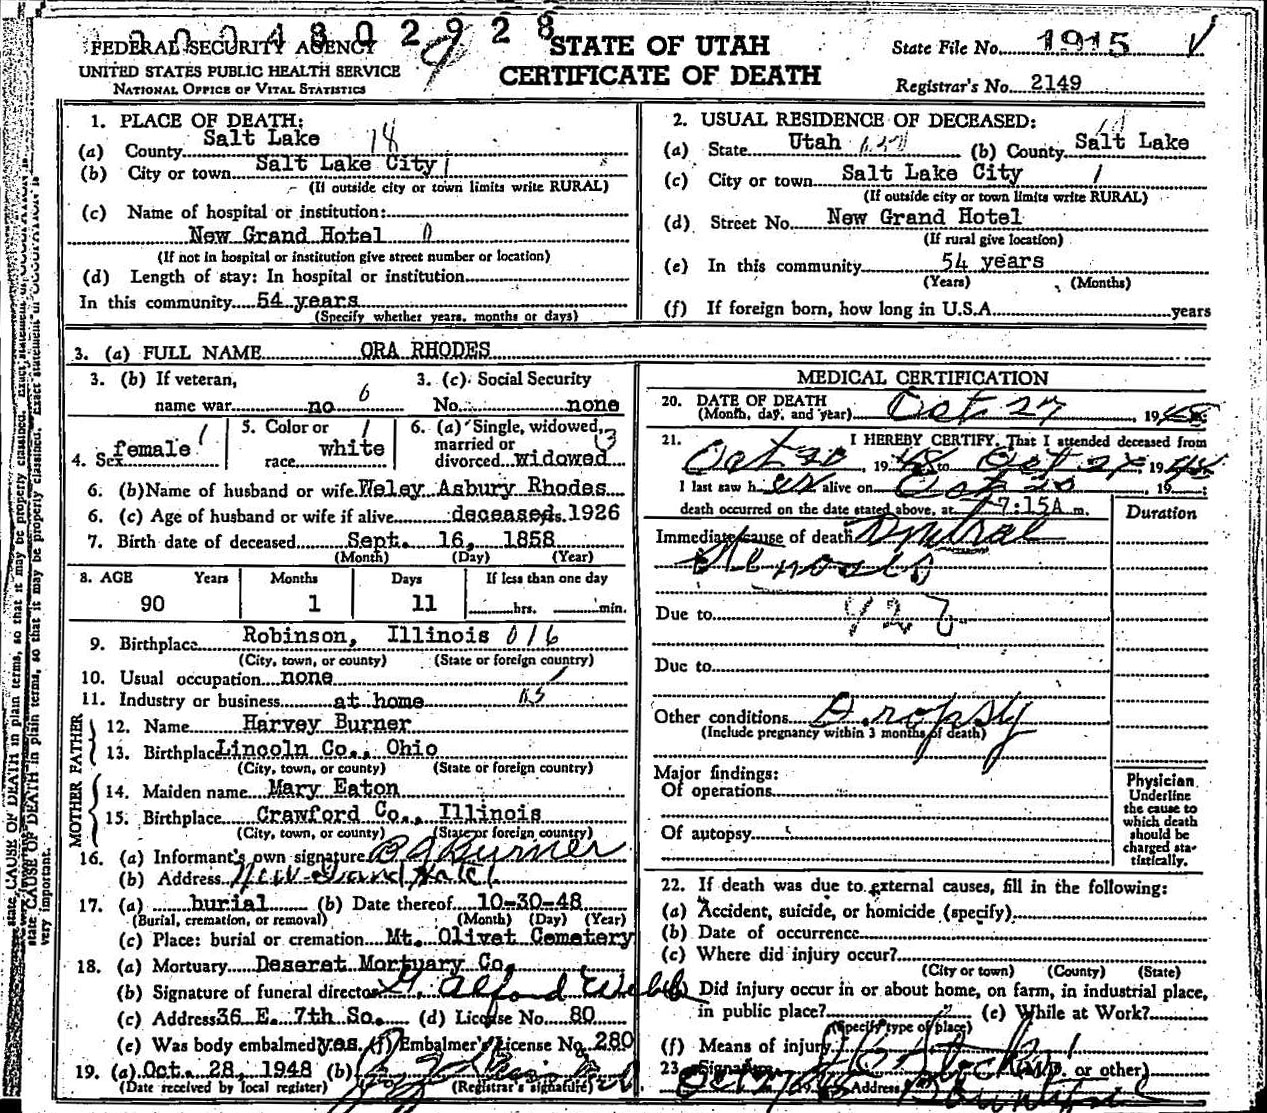 1004802928
FEDERAL SECURITY AGENCY
UNITED STATES PUBLIC HEALTH SERVICE
NATIONAL OFFICE OF VITAL STATISTICS
STATE OF UTAH
CERTIFICATE OF DEATH
State File No. 1915
Registrar's No. 2149
1. PLACE OF DEATH:
(a) County Salt Lake 18
(b) City or town Salt Lake City 1
(If outside city or town limits write RURAL)
(c) Name of hospital or institution:
New Grand Hotel 0
(If not in hospital or institution give street number or location)
(d) Length of stay: In hospital or institution
In this community 54 years
(Specify whether years, months or days)
2. USUAL RESIDENCE OF DECEASED:
(a) State Utah (b) County Salt Lake
(c) City or town Salt Lake City 1
(If outside city or town limits write RURAL)
(d) Street No. New Grand Hotel
(If rural give location)
(e) In this community 54 years
(Years) (Months)
(f) If foreign born, how long in U.S.A. years
3. (a) FULL NAME ORA RHODES
3. (b) If veteran,
name war no 6
3. (c) Social Security
No. none
4. Sex female 1
5. Color or
race white 1
6. (a) Single, widowed,
married or
divorced widowed 3
6. (b) Name of husband or wife Weley Asbury Rhodes
6. (c) Age of husband or wife if alive deceased yrs. 1926
7. Birth date of deceased Sept. 16, 1858
(Month) (Day) (Year)
8. AGE Years Months Days If less than one day
90 1 11 hrs. min.
9. Birthplace Robinson, Illinois 016
(City, town, or county) (State or foreign country)
10. Usual occupation none
11. Industry or business at home
FATHER
12. Name Harvey Burner
13. Birthplace Lincoln Co., Ohio
(City, town, or county) (State or foreign country)
MOTHER
14. Maiden name Mary Eaton
15. Birthplace Crawford Co., Illinois
(City, town, or county) (State or foreign country)
16. (a) Informant's own signature Burner
(b) Address New Grand Hotel
17. (a) burial (b) Date thereof 10-30-48
(Burial, cremation, or removal) (Month) (Day) (Year)
(c) Place: burial or cremation Mt. Olivet Cemetery
18. (a) Mortuary Deseret Mortuary Co.
(b) Signature of funeral director Alford Webb
(c) Address 36 E. 7th So. (d) License No. 80
(e) Was body embalmed yes (f) Embalmer's License No. 280
19. (a) Oct. 28, 1948 (b)
(Date received by local register) (Registrar's signature)
MEDICAL CERTIFICATION
20. DATE OF DEATH
(Month, day, and year) Oct 27, 1948
21. I HEREBY CERTIFY, That I attended deceased from
Oct 20, 1948 to Oct 27 1948
I last saw her alive on Oct 20 19
death occurred on the date stated above, at 7:15A m.
Duration
Immediate cause of death Mitral
Stenosis
Due to
Due to
Other conditions Dropsy
(Include pregnancy within 3 months of death)
Major findings:
Of operations
Of autopsy
Physician
Underline
the cause to
which death
should be
charged sta-
tistically.
22. If death was due to external causes, fill in the following:
(a) Accident, suicide, or homicide (specify)
(b) Date of occurrence
(c) Where did injury occur?
(City or town) (County) (State)
(d) Did injury occur in or about home, on farm, in industrial place,
in public place? (e) While at Work?
(Specify type of place)
(f) Means of injury
23. Signature (M.D. or other)
Address Bountiful
state CAUSE OF DEATH in plain terms, so that it may be properly classified.
very important.